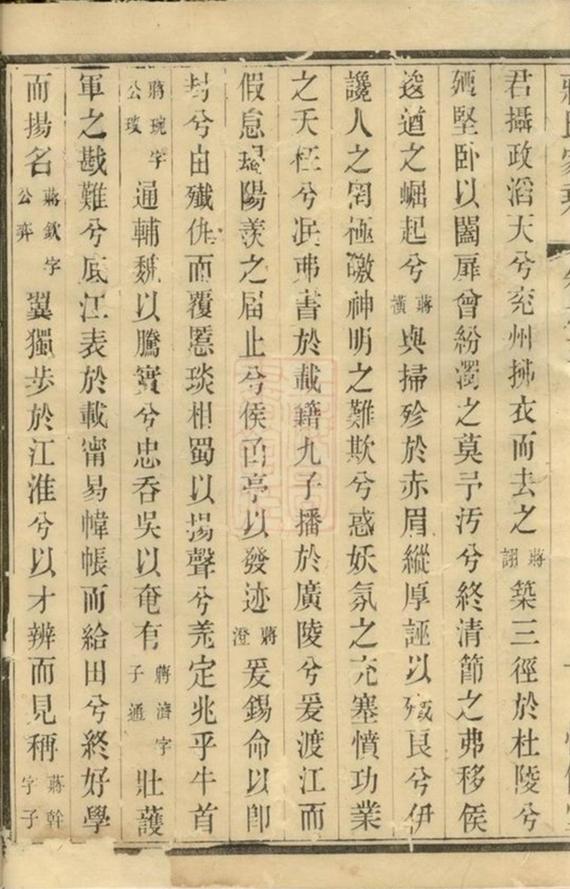 君攝政滔天兮兖州拂衣而去之蔣詡築三徑於杜陵兮
堅臥以闔扉曾紛濁之莫予汚兮終清節之弗移俟
逡遒之崛起兮蔣橫與掃殄於赤眉縱厚誣以殲良兮伊
讒人之罔極曒神明之難欺兮惑妖氛之充塞憤功業
之夭枉兮泯弗書於載籍九子播於廣陵兮爰渡江而
假息陽羨之届止兮侯亭以發迹蔣澄爰錫命以即
封兮由殲仇而覆惡琰相蜀以揚聲兮羗定兆乎牛首
蔣琬字公琰通輔魏以騰實兮忠吞吳以奄有蔣濟字子通壯護
軍之戡難兮厎江表於載甯易幃帳而給田兮終好學
而揚名蔣欽字公弈翼獨步於江淮兮以才辨而見稱蔣幹字子